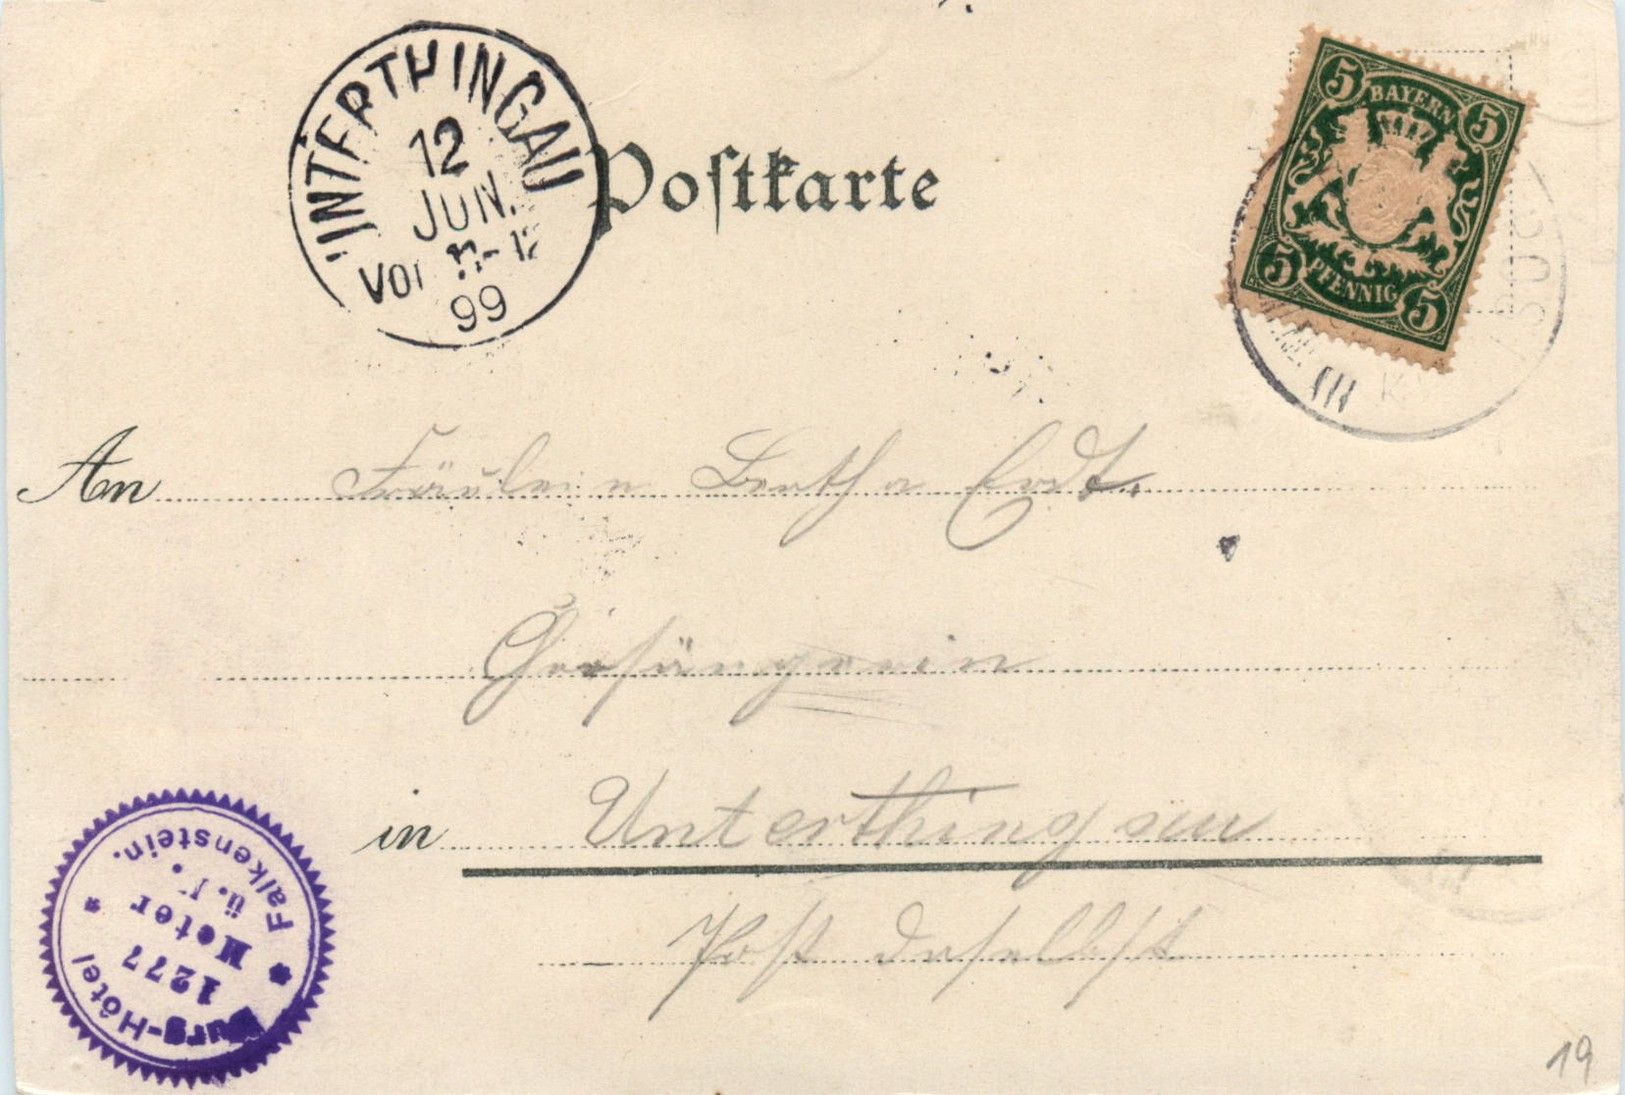 UNTERTHINGAU
12
JUN.
VOR 11-12
99
Postkarte
5 BAYERN 5
5 PFENNIG 5
An Fräulein Bertha Erdt.
in Unterthingau
Post daselbst
Burg-Hôtel * Falkenstein. *
1277
Meter
ü.
19